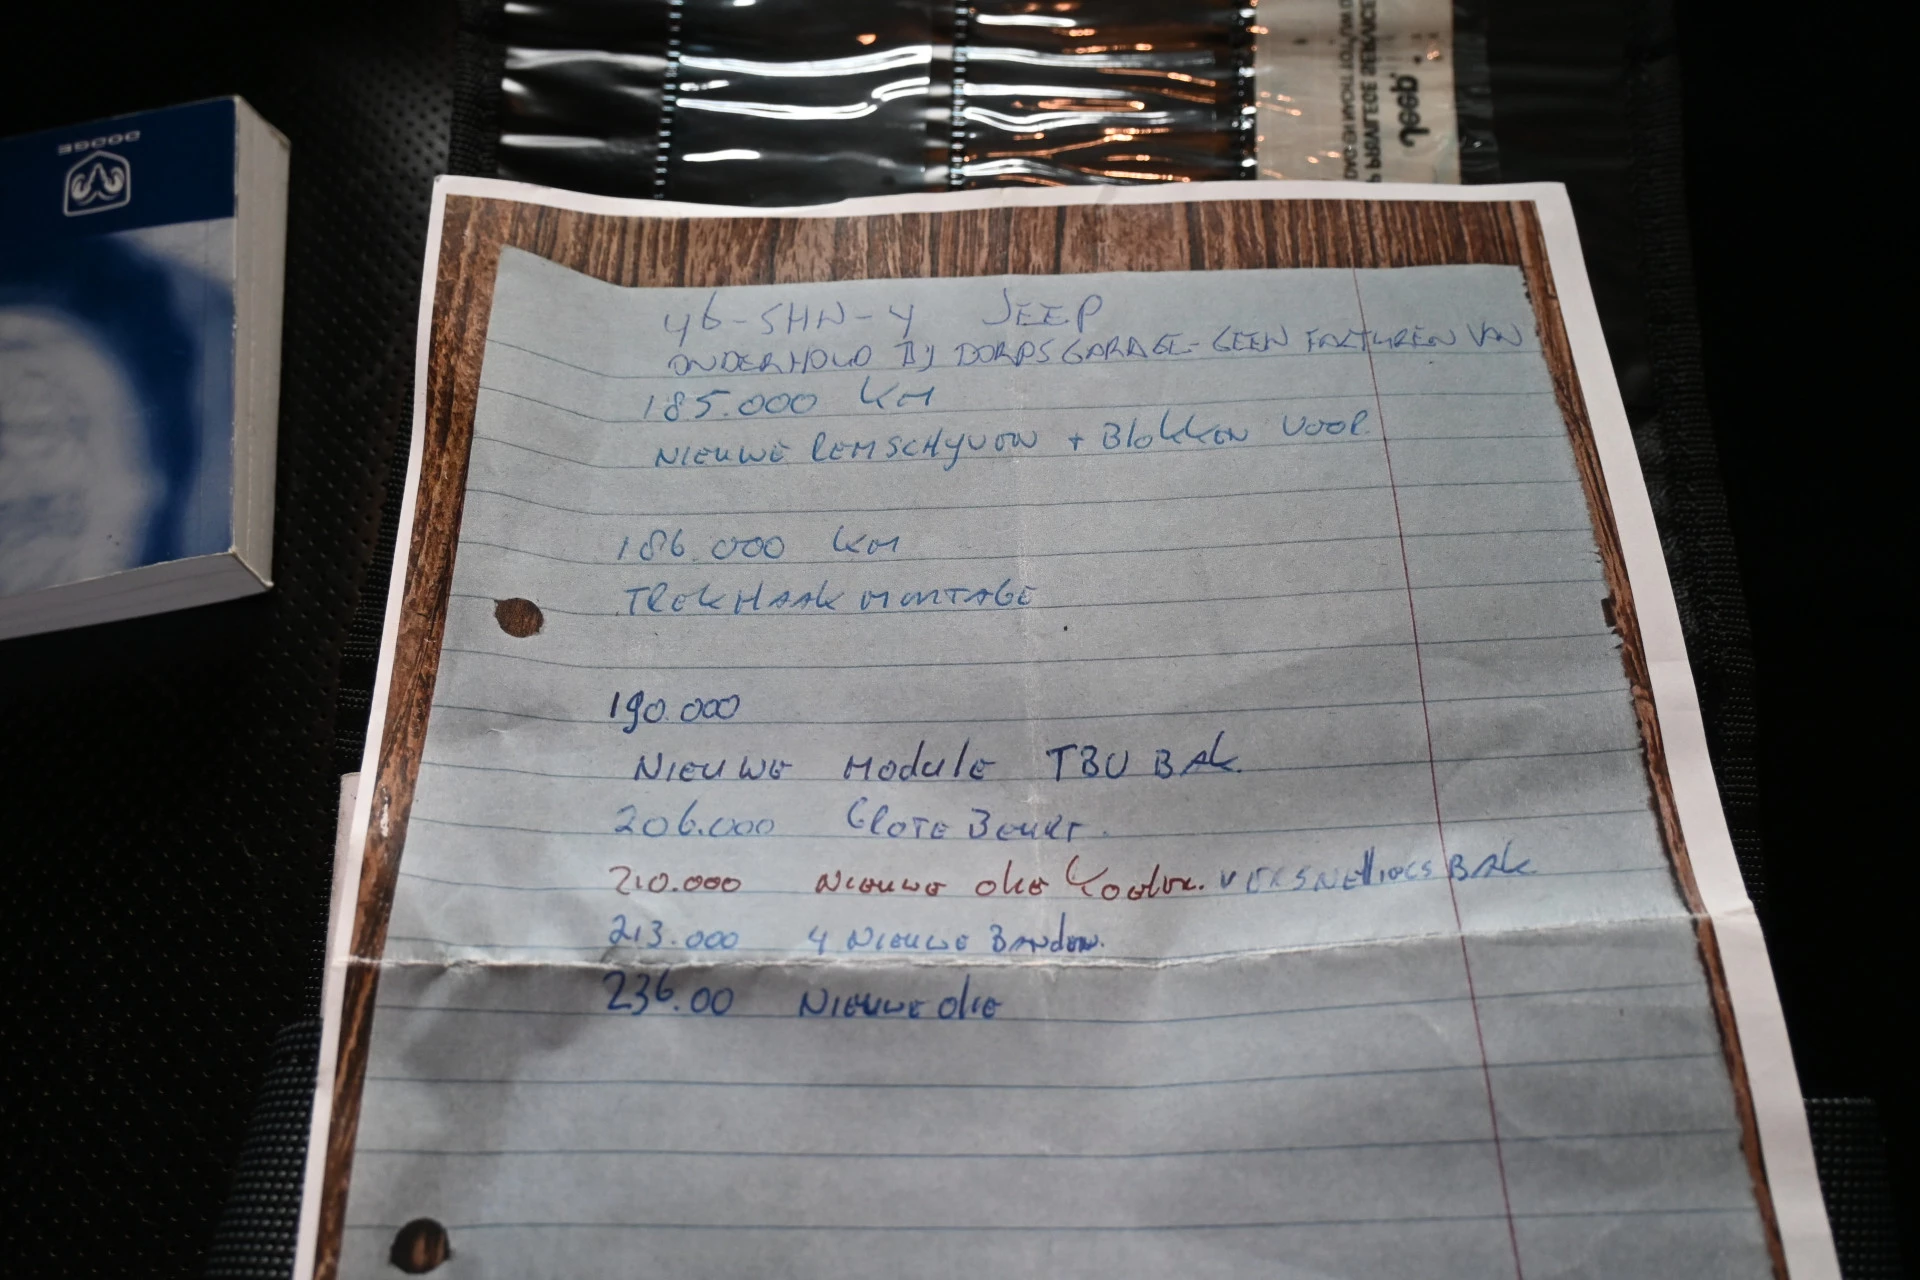 DODGE
Jeep
46-SHN-4 JEEP
ONDERHOUD BIJ DORPSGARAGE - GEEN FAKTUREN VAN
185.000 KM
NIEUWE REMSCHYVEN + BLOKKEN VOOR
186.000 KM
TREKHAAK MONTAGE
190.000
NIEUWE MODULE TBV BAK.
206.000 GROTE BEURT.
210.000 NIEUWE OLIE KOELER. VERSNELLINGSBAK
213.000 4 NIEUWE BANDEN.
236.00 NIEUWE OLIE